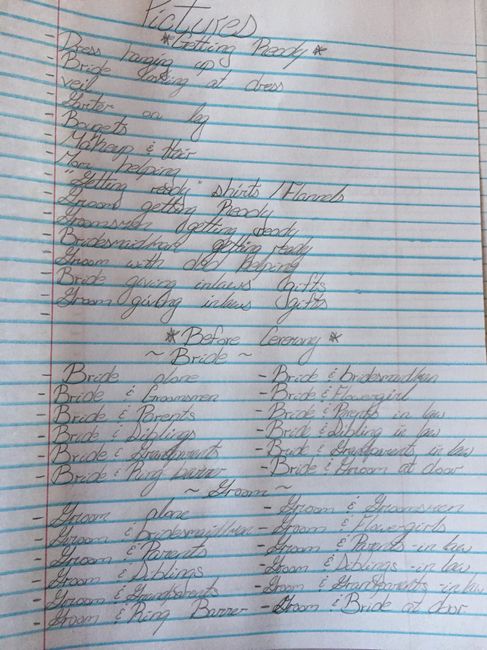 Pictures
*Getting Ready*
- Dress hanging up
- Bride looking at dress
- veil
- Garter on leg
- Bouqets
- Makeup & Hair
- Mom helping
- "Getting ready" shirts / Flannels
- Groom getting Ready
- Groomsmen getting ready
- Bridesmaid/man getting ready
- Groom with dad helping
- Bride giving inlaws gifts
- Groom giving inlaws gifts
*Before Ceremony*
~ Bride ~
- Bride alone
- Bride & Groomsmen
- Bride & Parents
- Bride & Siblings
- Bride & Grandparents
- Bride & Ring barrer
- Bride & bridesmaid/man
- Bride & Flowergirl
- Bride & Parents in law
- Bride & Sibling in law
- Bride & Grandparents in law
- Bride & Groom at door
~ Groom ~
- Groom alone
- Groom & bridesmaid/man
- Groom & Parents
- Groom & Siblings
- Groom & Grandparents
- Groom & Ring Barrer
- Groom & Groomsmen
- Groom & Flowergirls
- Groom & Parents -in law
- Groom & Siblings -in law
- Groom & Grandparents -in law
- Groom & Bride at door